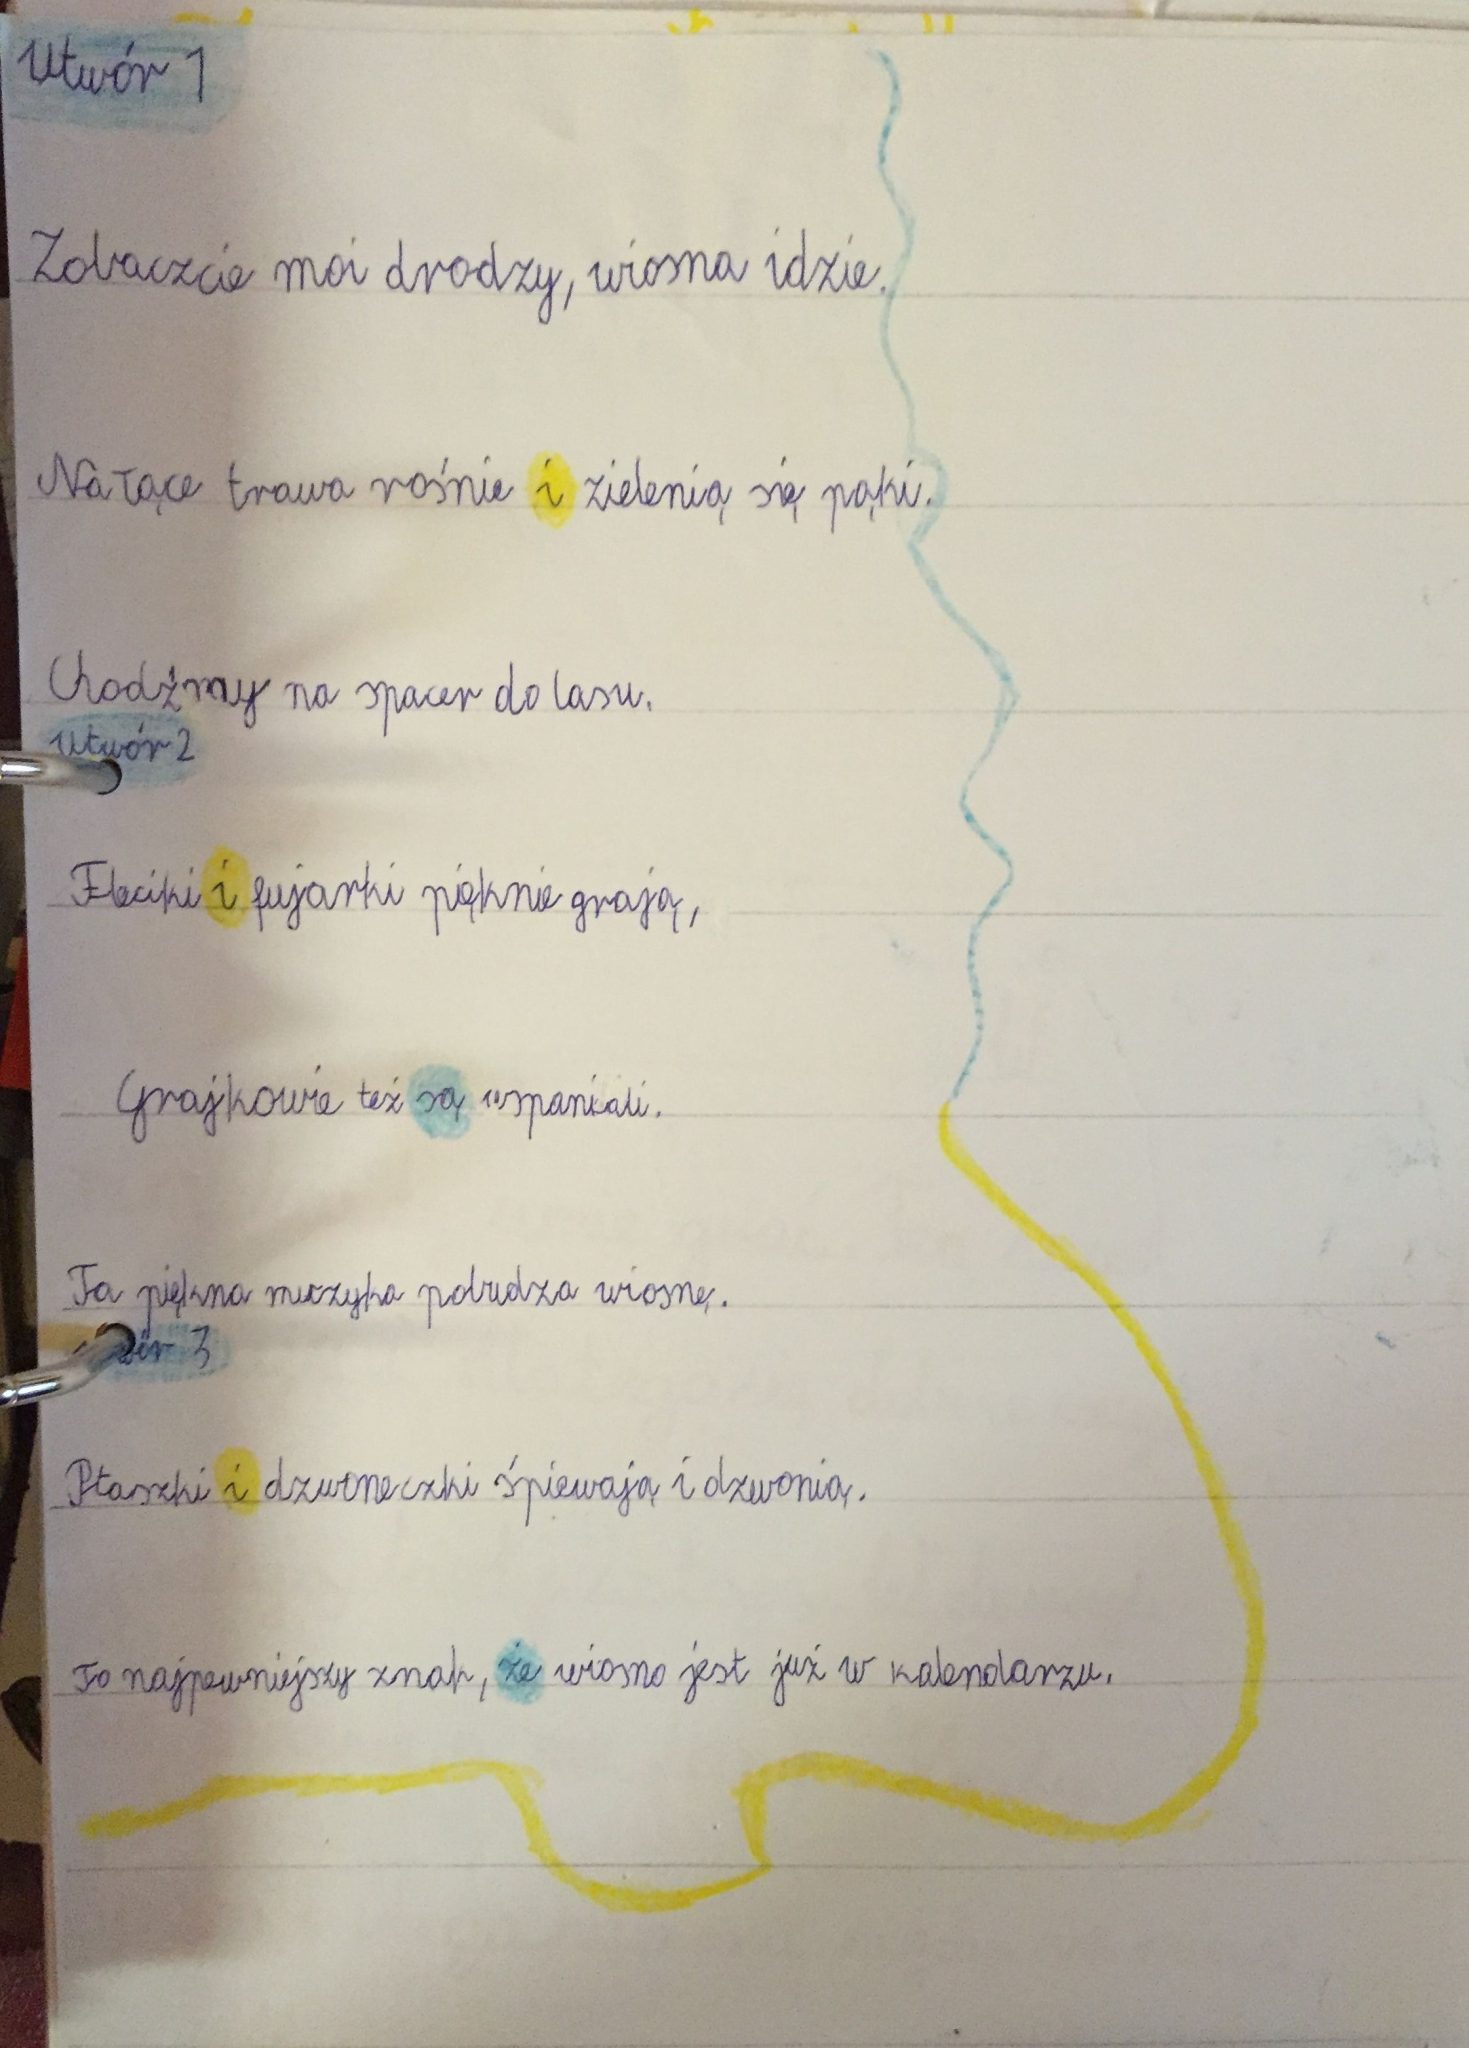 Utwór 1
Zobaczcie moi drodzy, wiosna idzie.
Na łące trawa rośnie i zielenią się pąki.
Chodźmy na spacer do lasu.
Utwór 2
Fleciki i fujarki pięknie grają,
Grajkowie też są wspaniali.
Ta piękna muzyka pobudza wiosnę.
3
Ptaszki i dzwoneczki śpiewają i dzwonią.
To najpewniejszy znak, że wiosno jest już w kalendarzu.